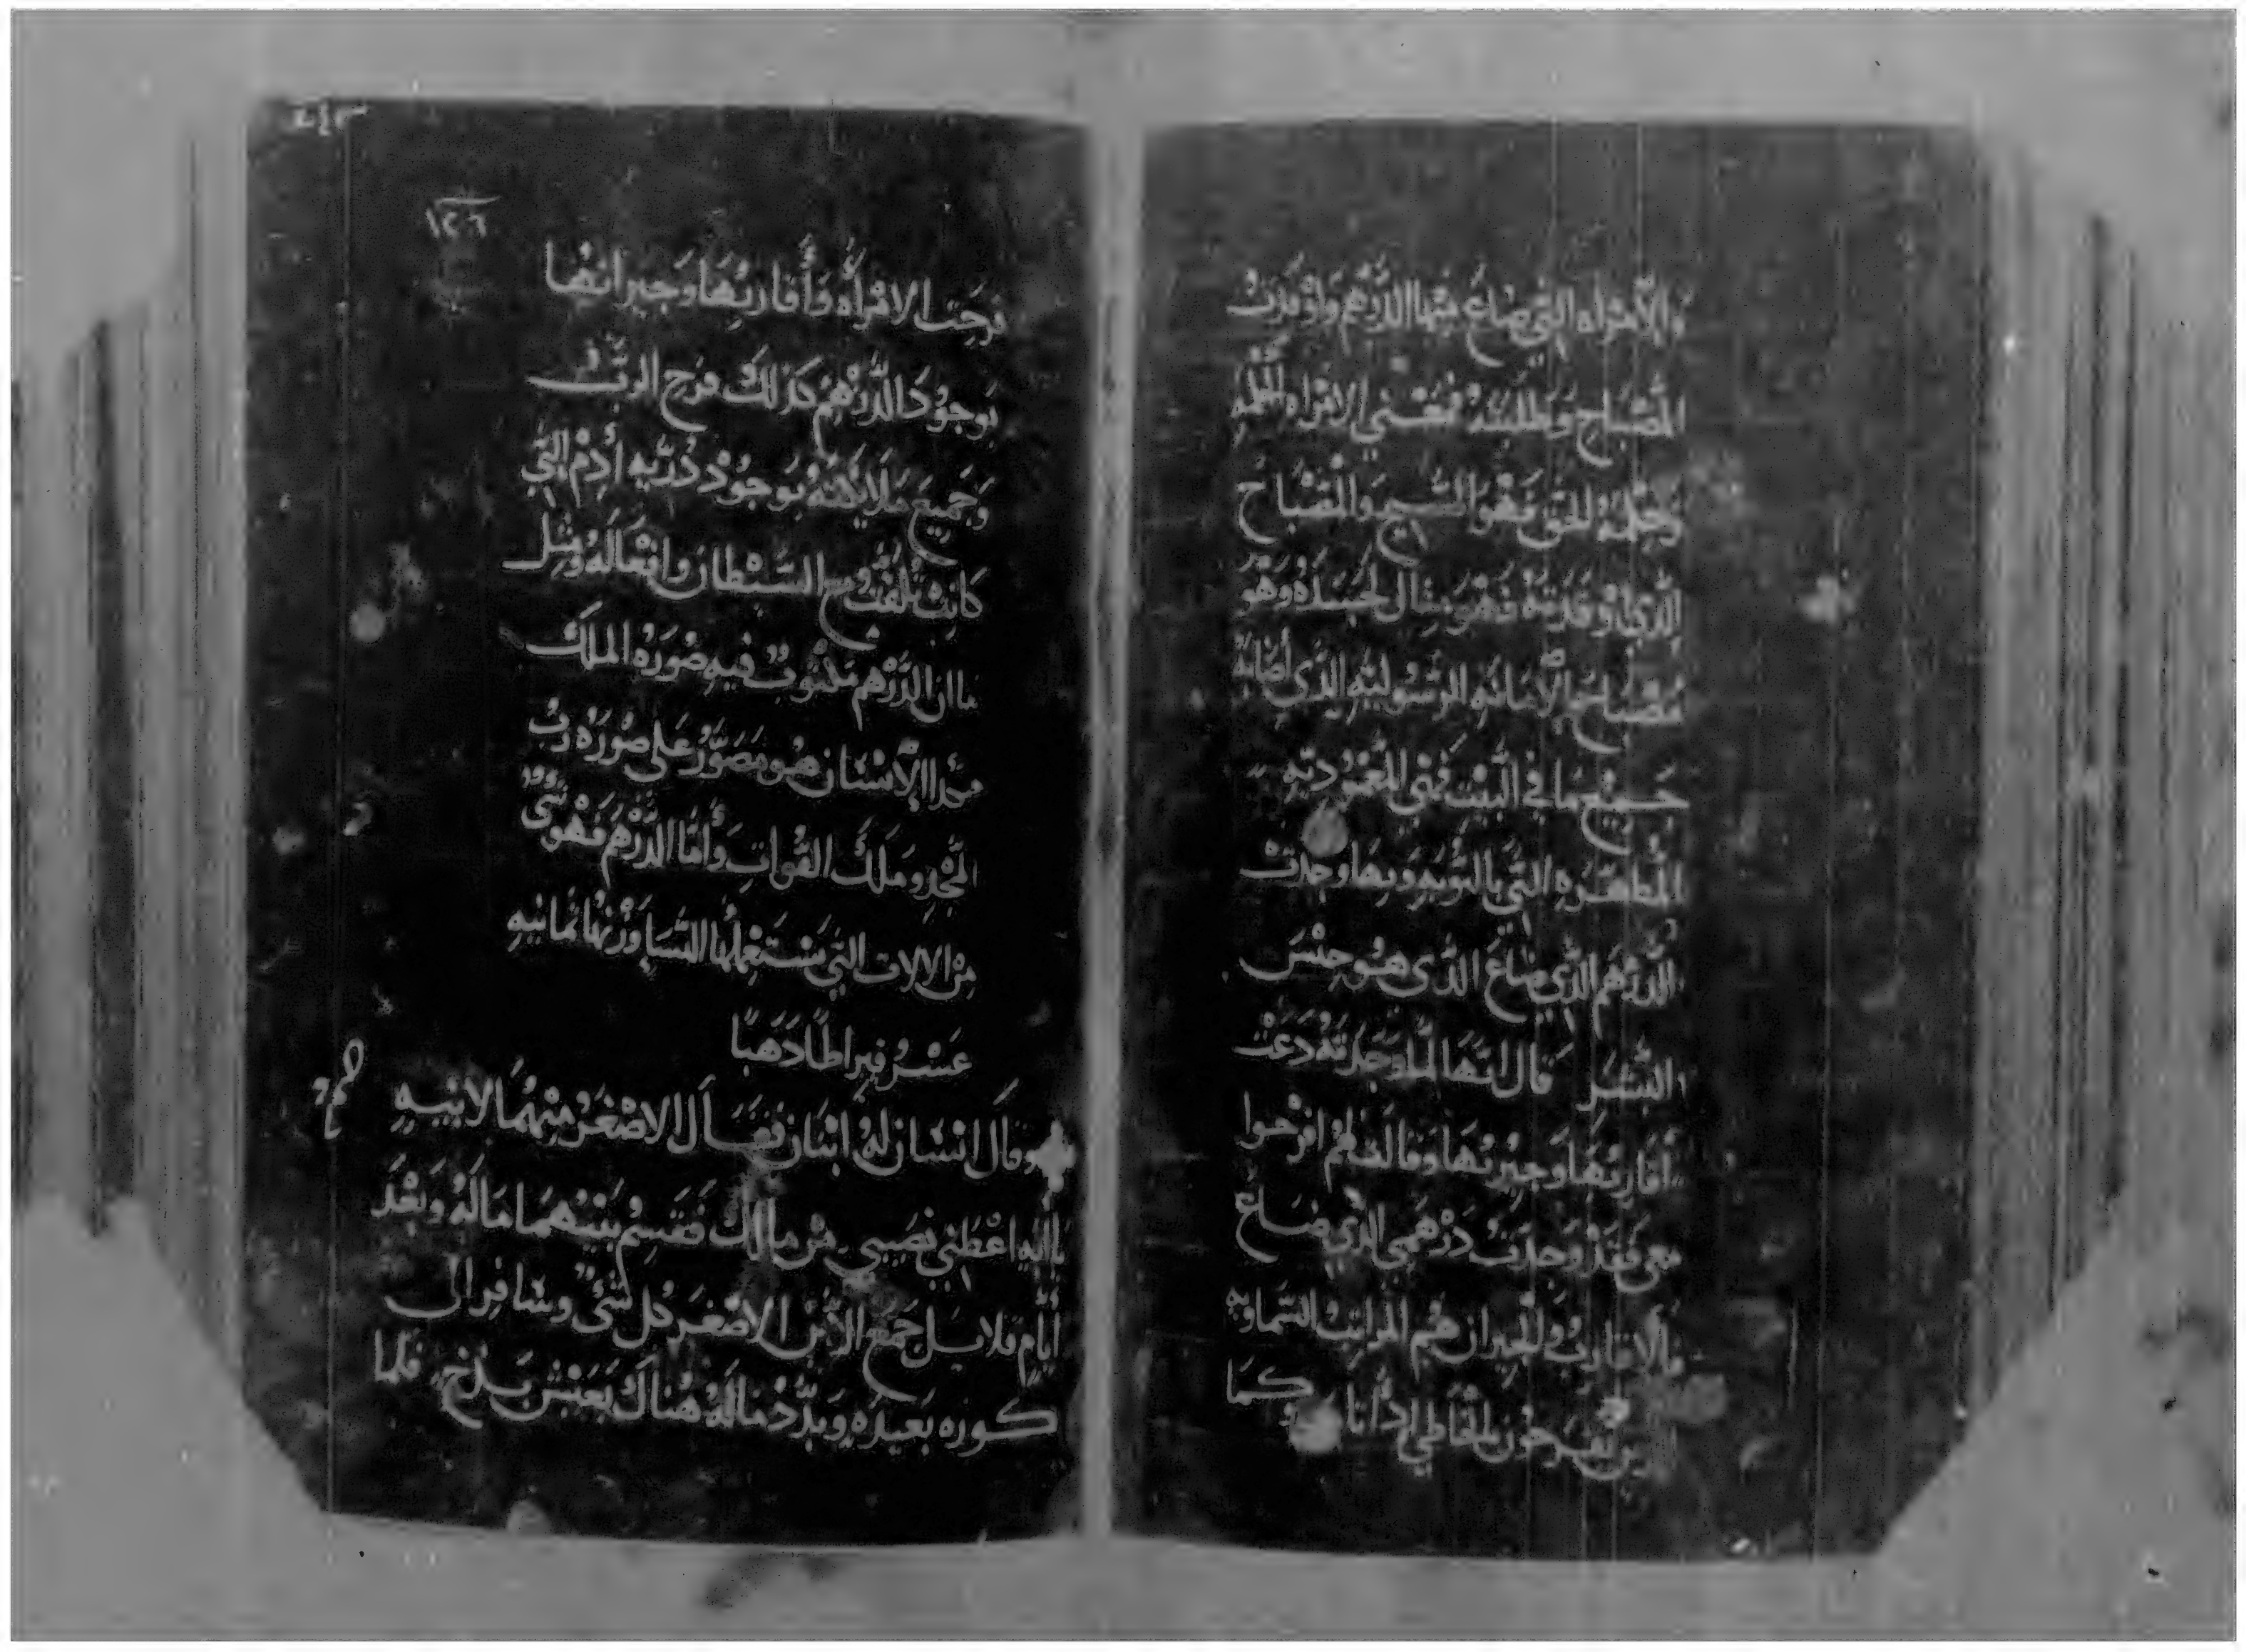 والامراه التي ضاع منها الدرهم واوقدت
المصباح وطلبته فيعني الامراه الحكمه
وحكمة الحق فهو المسيح والمصباح
الذي اوقدته فهو مثال لجسده وهو
مصباح الامانه الرسوليه الذي اضائه
جميع ما في البيت فهي المعموديه
المطهره التي بالتوبه وبها وجدت
الدرهم الذي ضاع الذي هو جنس
البشر قال انها لما وجدته دعت
اقاربها وجيرنها وقالت لهم افرحوا
معي فقد وجدت درهمي الذي ضاع
والاقارب والجيران هم المراتب السماويه
يفرحون بالخاطي اذا كما
١٢٠٦
فرحت الامراه وأقاربها وجيرانها
بوجود الدرهم كذلك فرح الرب
وجميع ملايكته بوجود ذريه ادم التي
كانت تلفت مع الشيطان وافعاله ومثل
ما ان الدرهم مكتوب فيه صورة الملك
هكذا الانسان هو مصور على صورة رب
المجد وملك القوات وأما الدرهم فهو شي
من الالات التي يستعملها النسا وزنها ثمانيه
عشر قيراطا دهبا
وقال انسان له ابنان فقال الاصغر منهما لابيه
يا ابه اعطني نصيبي من مالك فقسم بينهما ماله وبعد
أيام قلايل جمع الابن الاصغر كل شي وسافر الى
كوره بعيده وبدد ماله هناك بعيش بدخ فلما